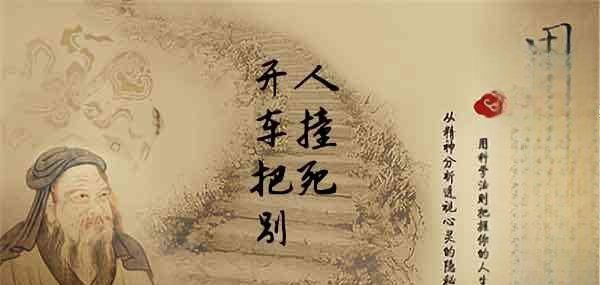 开车把别
人撞死
从精神分析透视心灵的隐秘
用科学法则把握你的人生